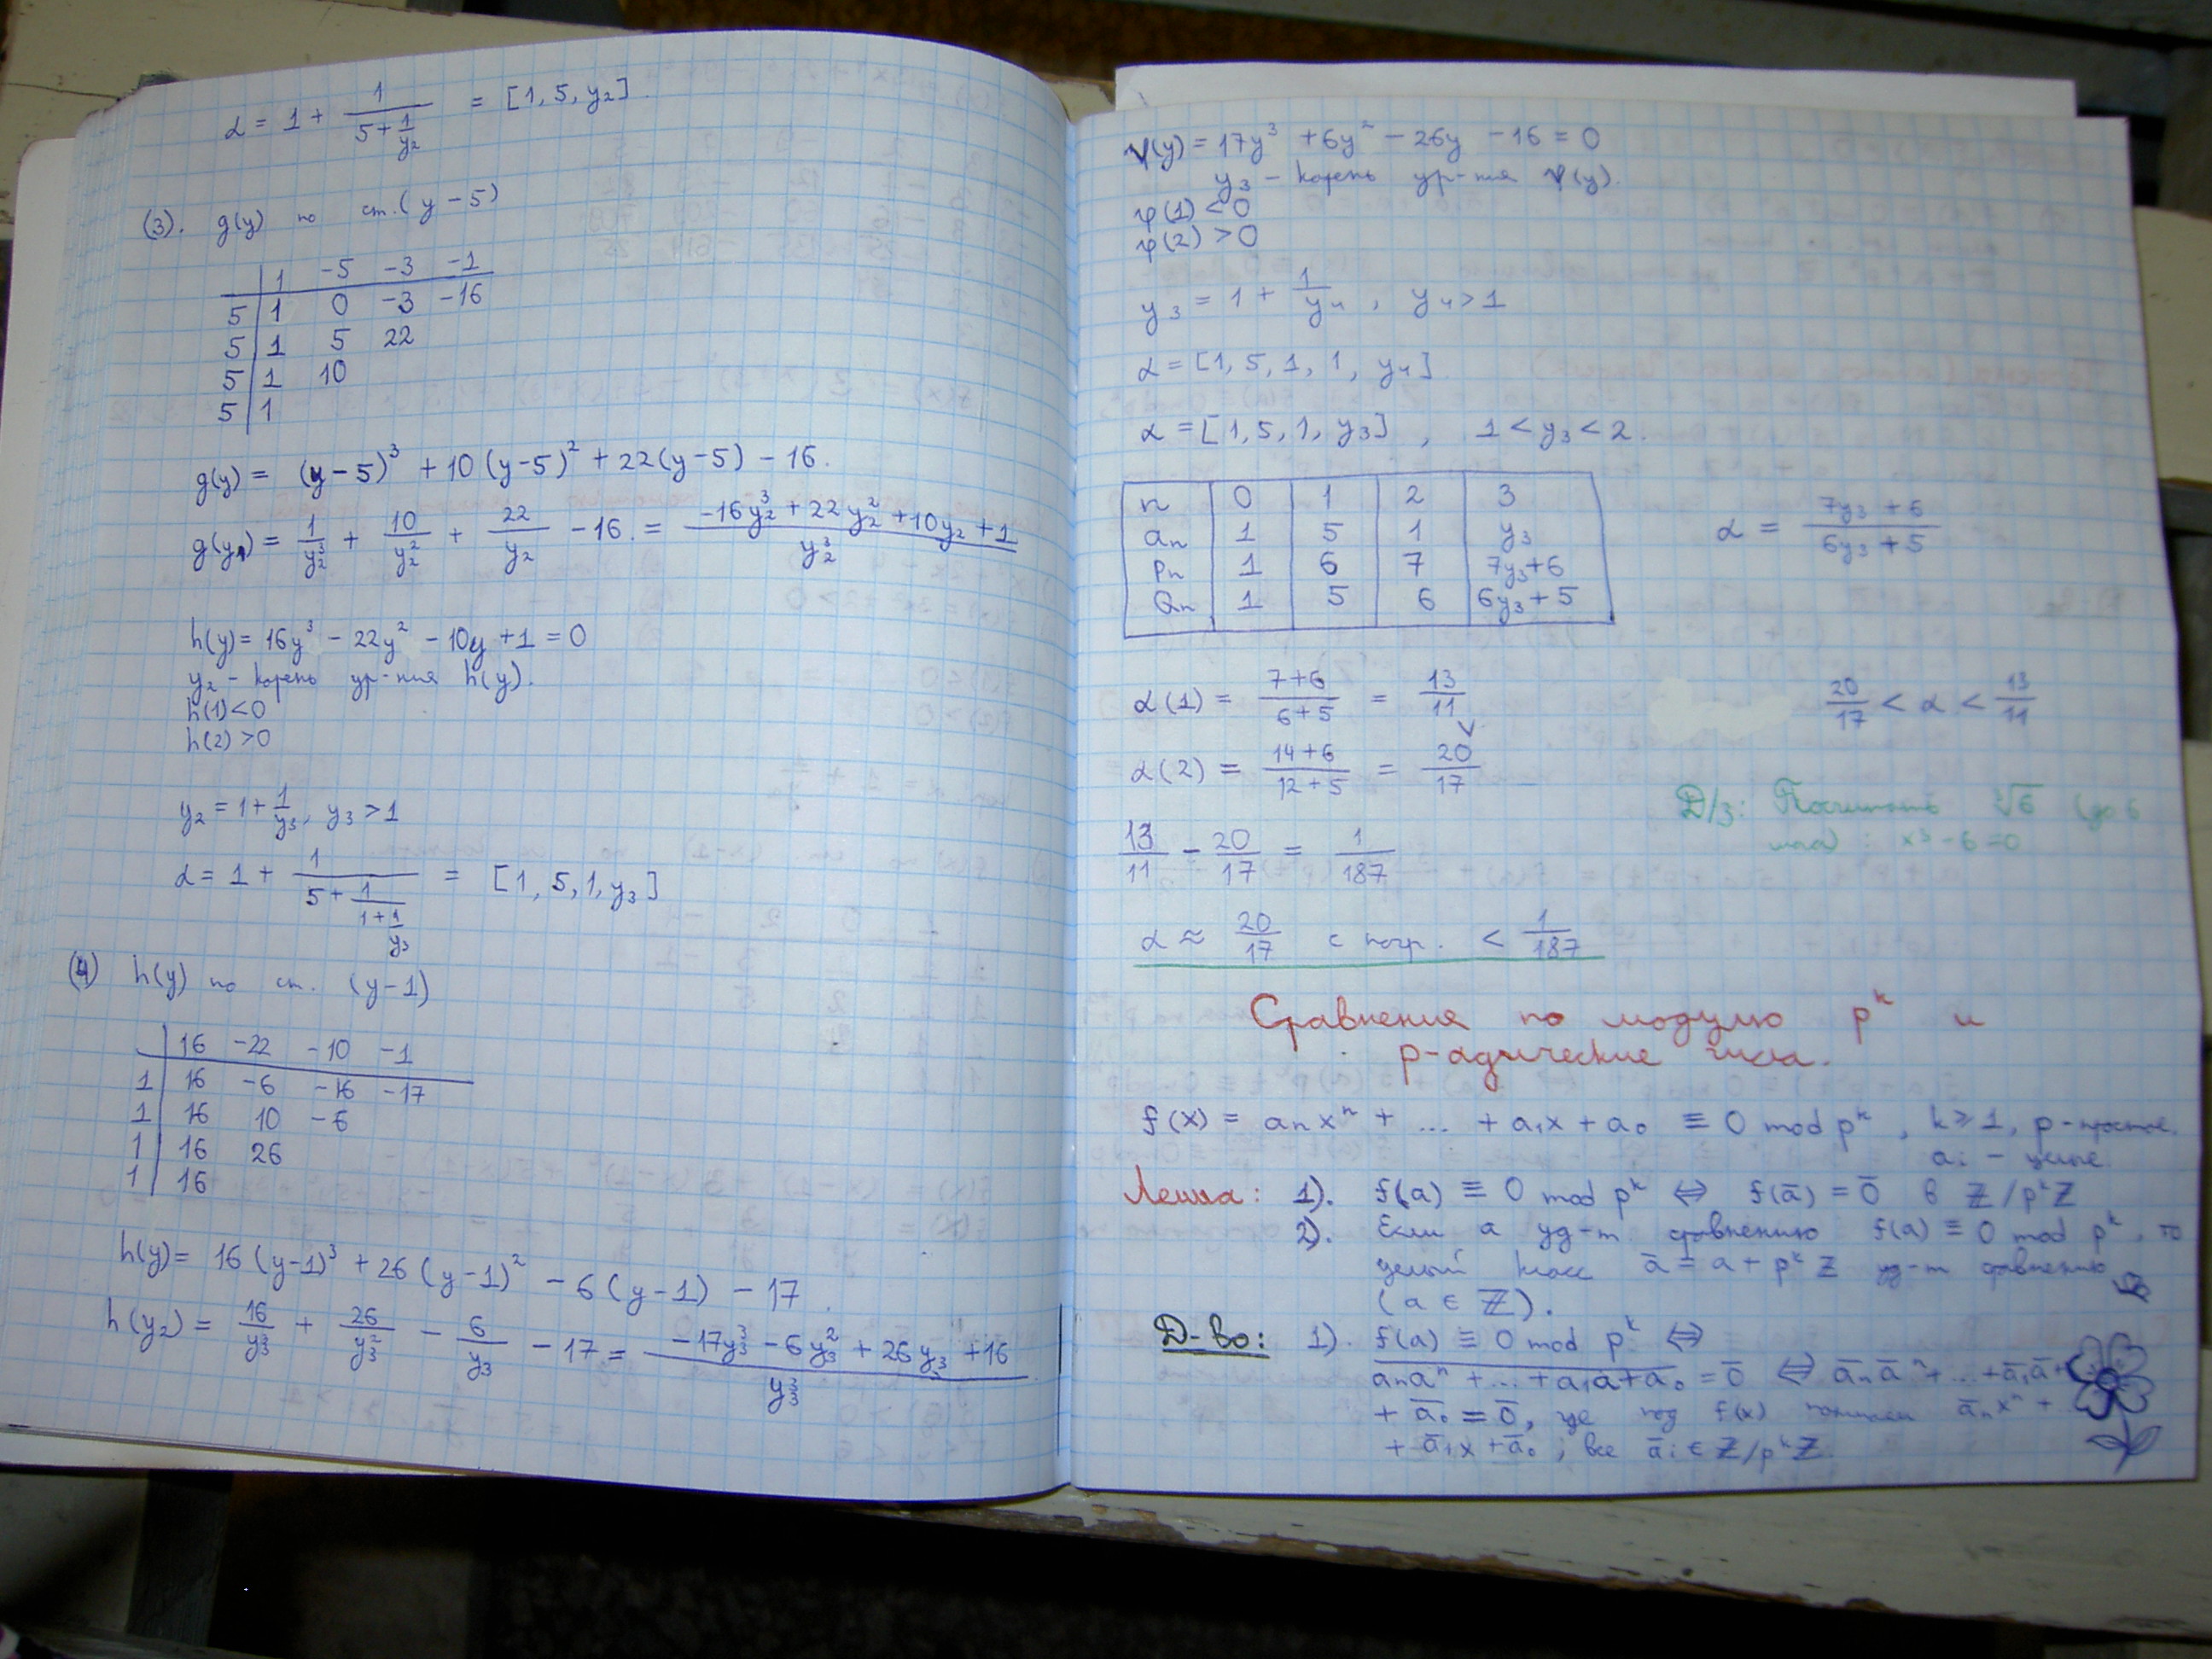 α = 1 + 1/(5 + 1/y₂) = [1, 5, y₂].
(3). g(y) по ст. (y − 5)
1 −5 −3 −1
5 1 0 −3 −16
5 1 5 22
5 1 10
5 1
g(y) = (y − 5)³ + 10(y − 5)² + 22(y − 5) − 16.
g(y₁) = 1/y₂³ + 10/y₂² + 22/y₂ − 16. = (−16y₂³ + 22y₂² + 10y₂ + 1)/y₂³
h(y) = 16y³ − 22y² − 10y + 1 = 0
y₂ − корень ур-ния h(y).
h(1) < 0
h(2) > 0
y₂ = 1 + 1/y₃, y₃ > 1
α = 1 + 1/(5 + 1/(1 + 1/y₃)) = [1, 5, 1, y₃]
(4) h(y) по ст. (y − 1)
16 −22 −10 −1
1 16 −6 −16 −17
1 16 10 −6
1 16 26
1 16
h(y) = 16(y − 1)³ + 26(y − 1)² − 6(y − 1) − 17.
h(y₂) = 16/y₃³ + 26/y₃² − 6/y₃ − 17 = (−17y₃³ − 6y₃² + 26y₃ + 16)/y₃³
ψ(y) = 17y³ + 6y² − 26y − 16 = 0
y₃ − корень ур-ния ψ(y).
ψ(1) < 0
ψ(2) > 0
y₃ = 1 + 1/y₄, y₄ > 1
α = [1, 5, 1, 1, y₄].
α = [1, 5, 1, y₃], 1 < y₃ < 2.
n 0 1 2 3
aₙ 1 5 1 y₃
Pₙ 1 6 7 7y₃+6
Qₙ 1 5 6 6y₃+5
α = (7y₃ + 6)/(6y₃ + 5)
α(1) = (7+6)/(6+5) = 13/11
20/17 < α < 13/11
α(2) = (14+6)/(12+5) = 20/17
Д/з: Посчитать ∛6 (до 6
x³ − 6 = 0
13/11 − 20/17 = 1/187
α ≈ 20/17 с погр. < 1/187
Сравнения по модулю pᵏ и
p-адические числа.
f(x) = aₙxⁿ + ... + a₁x + a₀ ≡ 0 mod pᵏ, k ≥ 1, p − простое,
aᵢ − целые
Лемма: 1). f(a) ≡ 0 mod pᵏ ⇔ f(ā) = 0̄ в ℤ/pᵏℤ
2). Если a уд-т сравнению f(a) ≡ 0 mod pᵏ, то
целый класс ā = a + pᵏℤ уд-т сравнению
(a ∈ ℤ).
Д-во: 1). f(a) ≡ 0 mod pᵏ ⇔
a̅ₙ̅a̅ⁿ̅ ̅+̅ ̅.̅.̅.̅ ̅+̅ ̅a̅₁̅a̅ ̅+̅ ̅a̅₀̅ = 0̄ ⇔ āₙāⁿ + ... + ā₁ā +
+ ā₀ = 0̄, где под f(x) понимаем āₙxⁿ +
+ ā₁x + ā₀; все āᵢ ∈ ℤ/pᵏℤ.